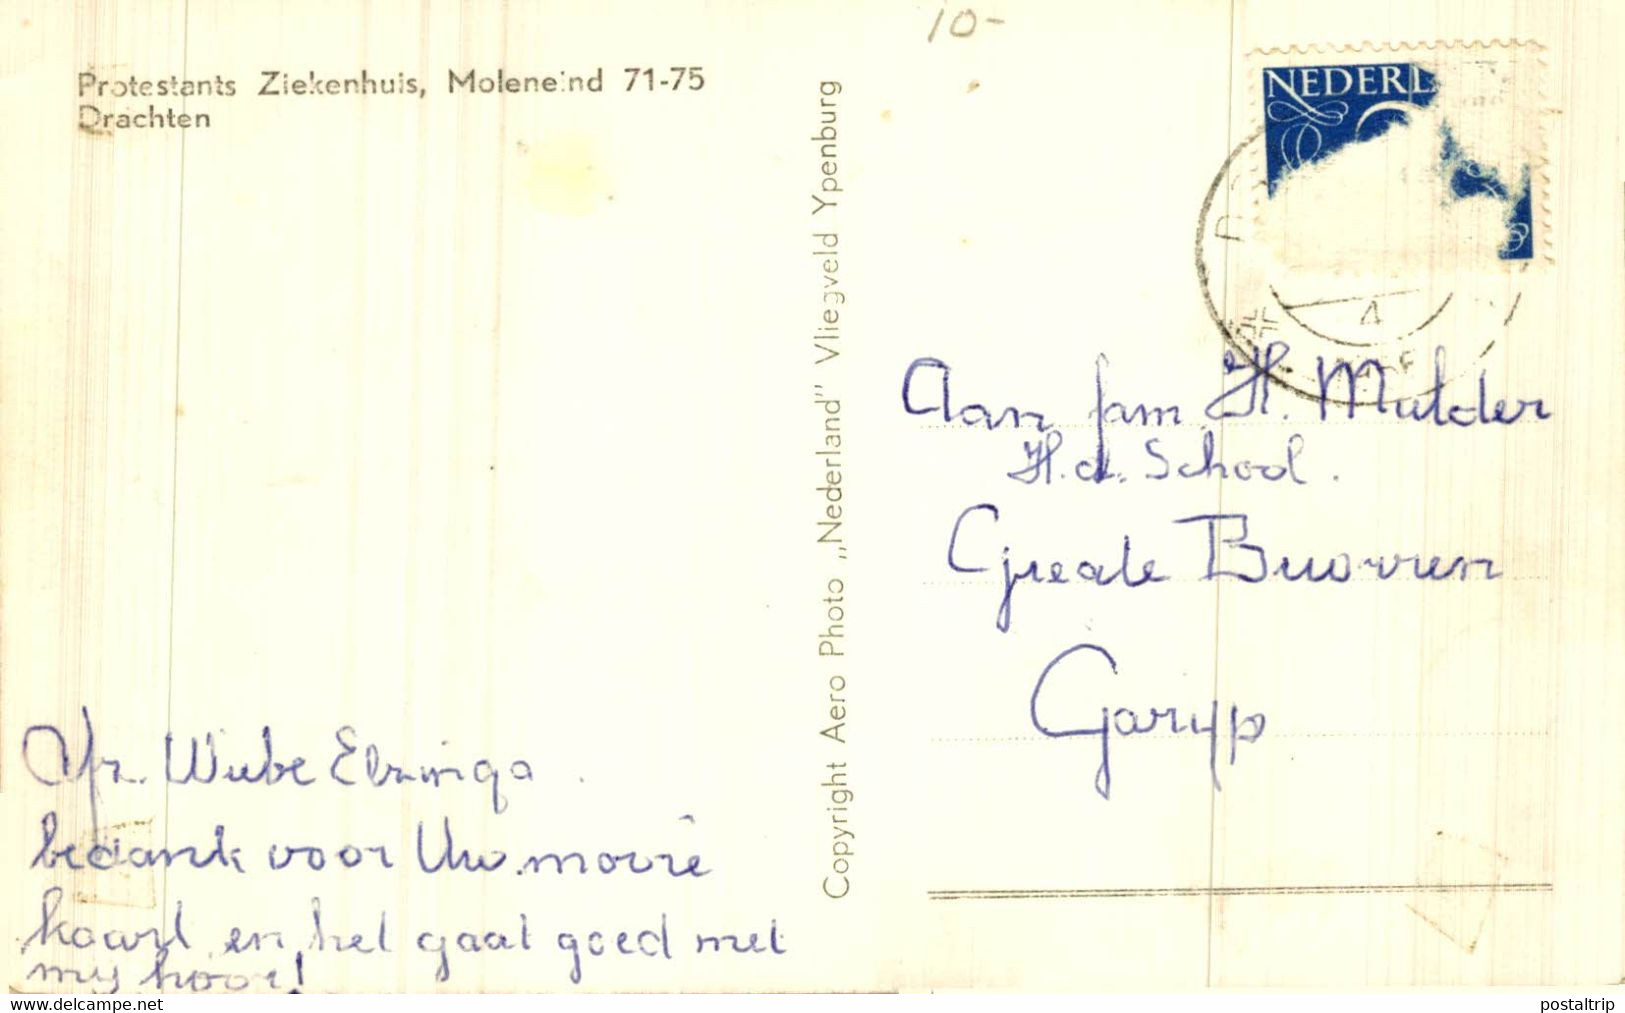 10-
Protestants Ziekenhuis, Moleneind 71-75
Drachten
Copyright Aero Photo „Nederland" Vliegveld Ypenburg
NEDERL
4
Aan fam H. Mulder
H.d. School.
Greate Buorren
Garyp
Afz. Wiebe Elzinga
bedank voor Uw mooie
kaart en het gaat goed met
my hoor!
www.delcampe.net
postaltrip